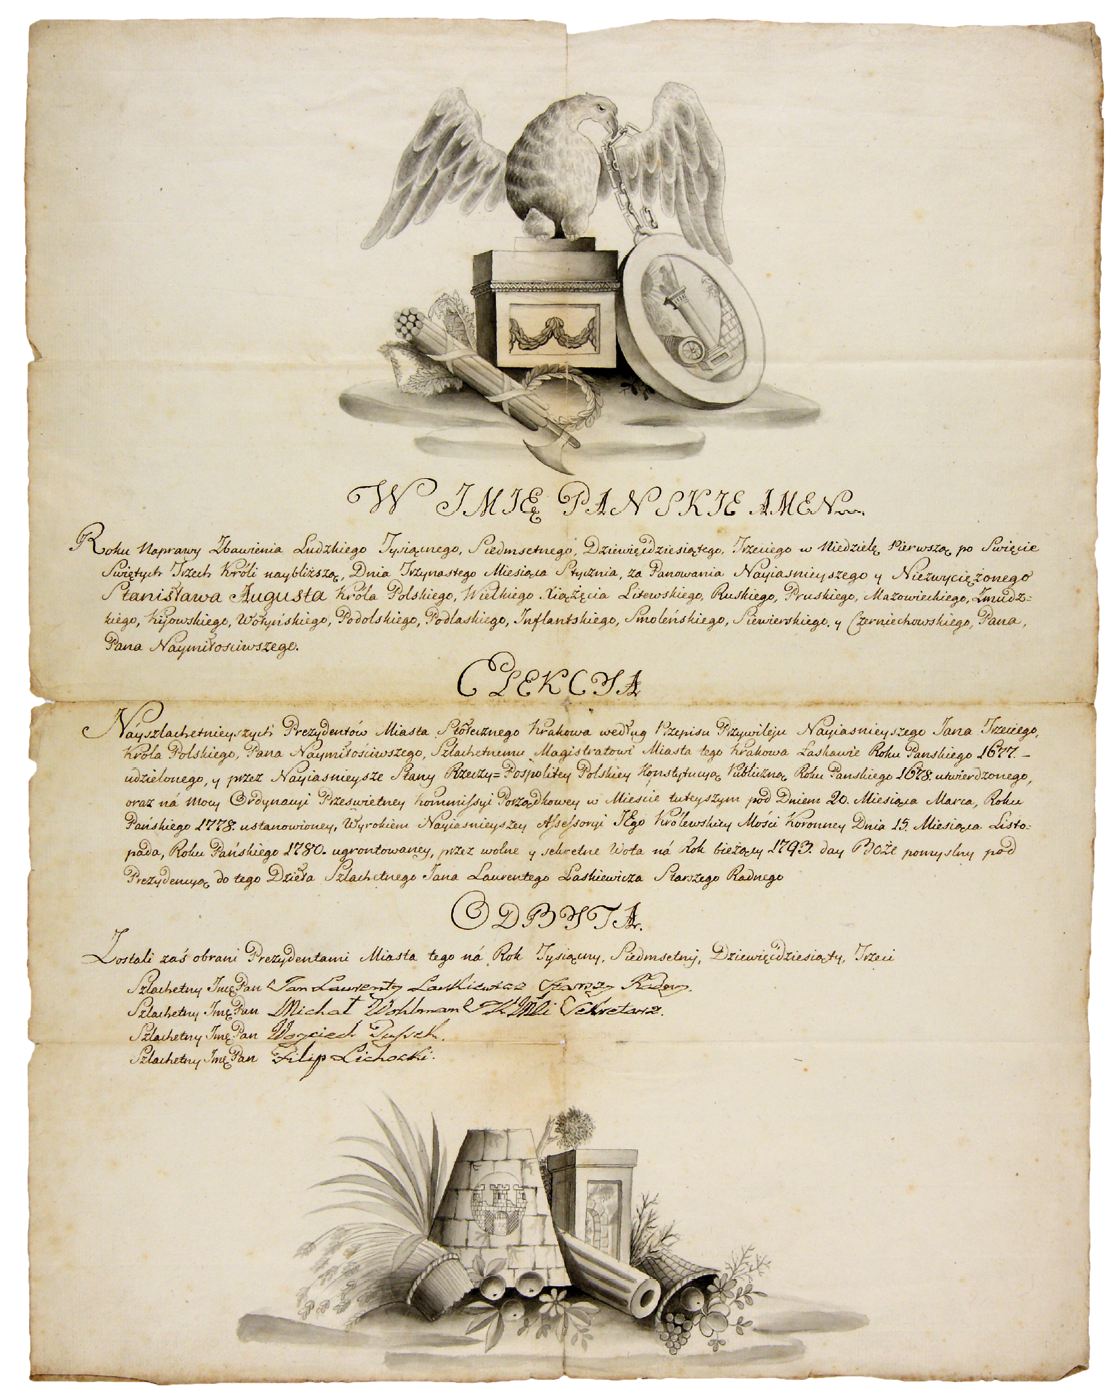 W IMIĘ PANSKIE AMEN
Roku Naprawy Zbawienia Ludzkiego Tysiącnego, Siedmsetnego, Dziewięćdziesiątego, Trzeciego w Niedzielę Pierwszą po Swięcie
Swiętych Trzech Króli naybliższą, Dnia Trzynastego Miesiąca Stycznia, za Panowania Nayiasnieyszego y Niezwyciężonego
Stanisława Augusta Króla Polskiego, Wielkiego Xiążęcia Litewskiego, Ruskiego, Pruskiego, Mazowieckiego, Zmudz-
kiego, Kijowskiego, Wołyńskiego, Podolskiego, Podlaskiego, Inflantskiego, Smoleńskiego, Siewierskiego, y Czerniechowskiego, Pana,
Pana Naymiłościwszego.
ELEKCYA
Nayszlachetnieyszych Prezydentów Miasta Stołecznego Krakowa według Przepisu Przywileju Nayiasnieyszego Jana Trzeciego,
Króla Polskiego, Pana Naymiłościwszego, Szlachetnemu Magistratowi Miasta tego Krakowa Łaskawie Roku Panskiego 1677. –
udzielonego, y przez Nayiasnieysze Stany Rzeczy=Pospolitey Polskiey Konstytucyą Publiczną Roku Panskiego 1678. utwierdzonego,
oraz ná mocy Ordynacyi Prześwietney Kommissyi Porządkowey w Mieście tuteyszym pod Dniem 20. Miesiąca Marca, Roku
Pańskiego 1778. ustanowioney, Wyrokiem Nayiasnieyszey Assessoryi JEgo Królewskiey Mości Koronney Dnia 15. Miesiąca Listo-
pada, Roku Pańskiego 1780. ugrontowaney, przez wolne y sekretne Wota ná Rok bieżący 1793. day Boże pomyslny pod
Prezydencyą do tego Dzieła Szlachetnego Jana Laurentego Łaskiewicza Starszego Radnego
ODBYTA.
Zostali zaś obrani Prezydentami Miasta tego ná Rok Tysiączny, Siedmsetny, Dziewięćdziesiąty, Trzeci
Szlachetny Jmę Pan Jan Laurenty Laskiewicz Starszy Radny.
Szlachetny Jmę Pan Michał Wohlman Sekretarz.
Szlachetny Jmę Pan Woyciech
Szlachetny Jmę Pan Filip Lichocki.